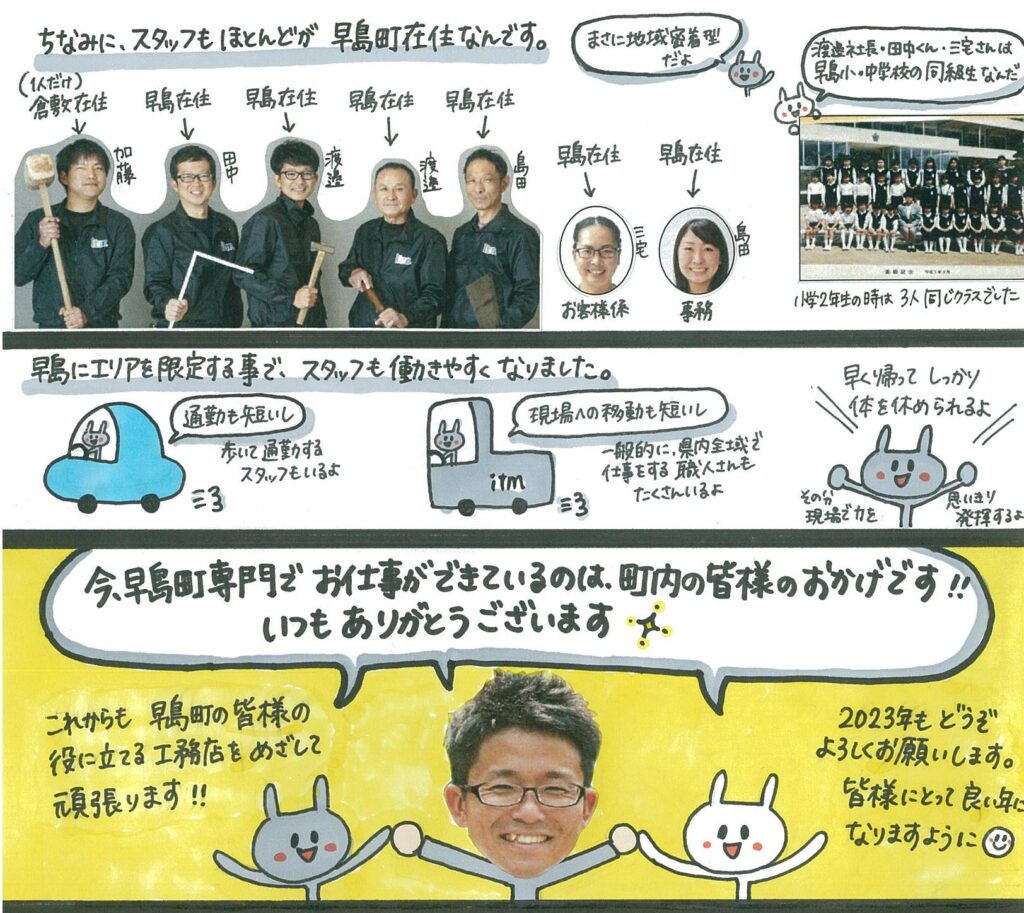 ちなみに、スタッフもほとんどが 早島町在住なんです。
まさに地域密着型
だよ
渡邉社長・田中くん・三宅さんは
早島小・中学校の同級生なんだ
(1人だけ)
倉敷在住
早島在住
早島在住
早島在住
早島在住
加藤
田中
渡邉
渡邉
島田
早島在住
早島在住
三宅
島田
お客様係
事務
小学2年生の時は 3人同じクラスでした
早島にエリアを限定する事で、スタッフも働きやすくなりました。
通勤も短いし
歩いて通勤する
スタッフもいるよ
現場への移動も短いし
一般的に、県内全域で
仕事をする職人さんも
たくさんいるよ
itm
早く帰って しっかり
体を休められるよ
その分
現場で力を
思いきり
発揮するよ
今、早島町専門で お仕事ができているのは、町内の皆様のおかげです!!
いつもありがとうございます
これからも 早島町の皆様の
役に立てる工務店をめざして
頑張ります!!
2023年もどうぞ
よろしくお願いします。
皆様にとって良い年に
なりますように